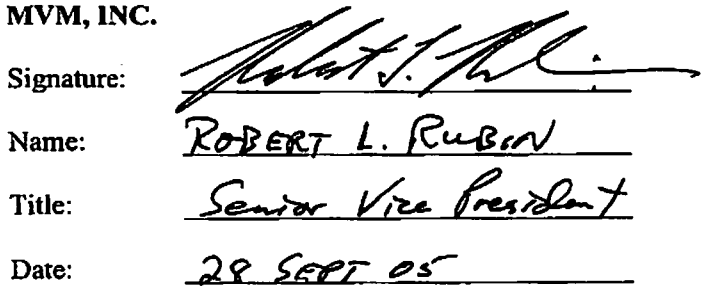 MVM, INC.
Signature: Robert L. Rubin
Name: ROBERT L. RUBIN
Title: Senior Vice President
Date: 28 SEPT 05